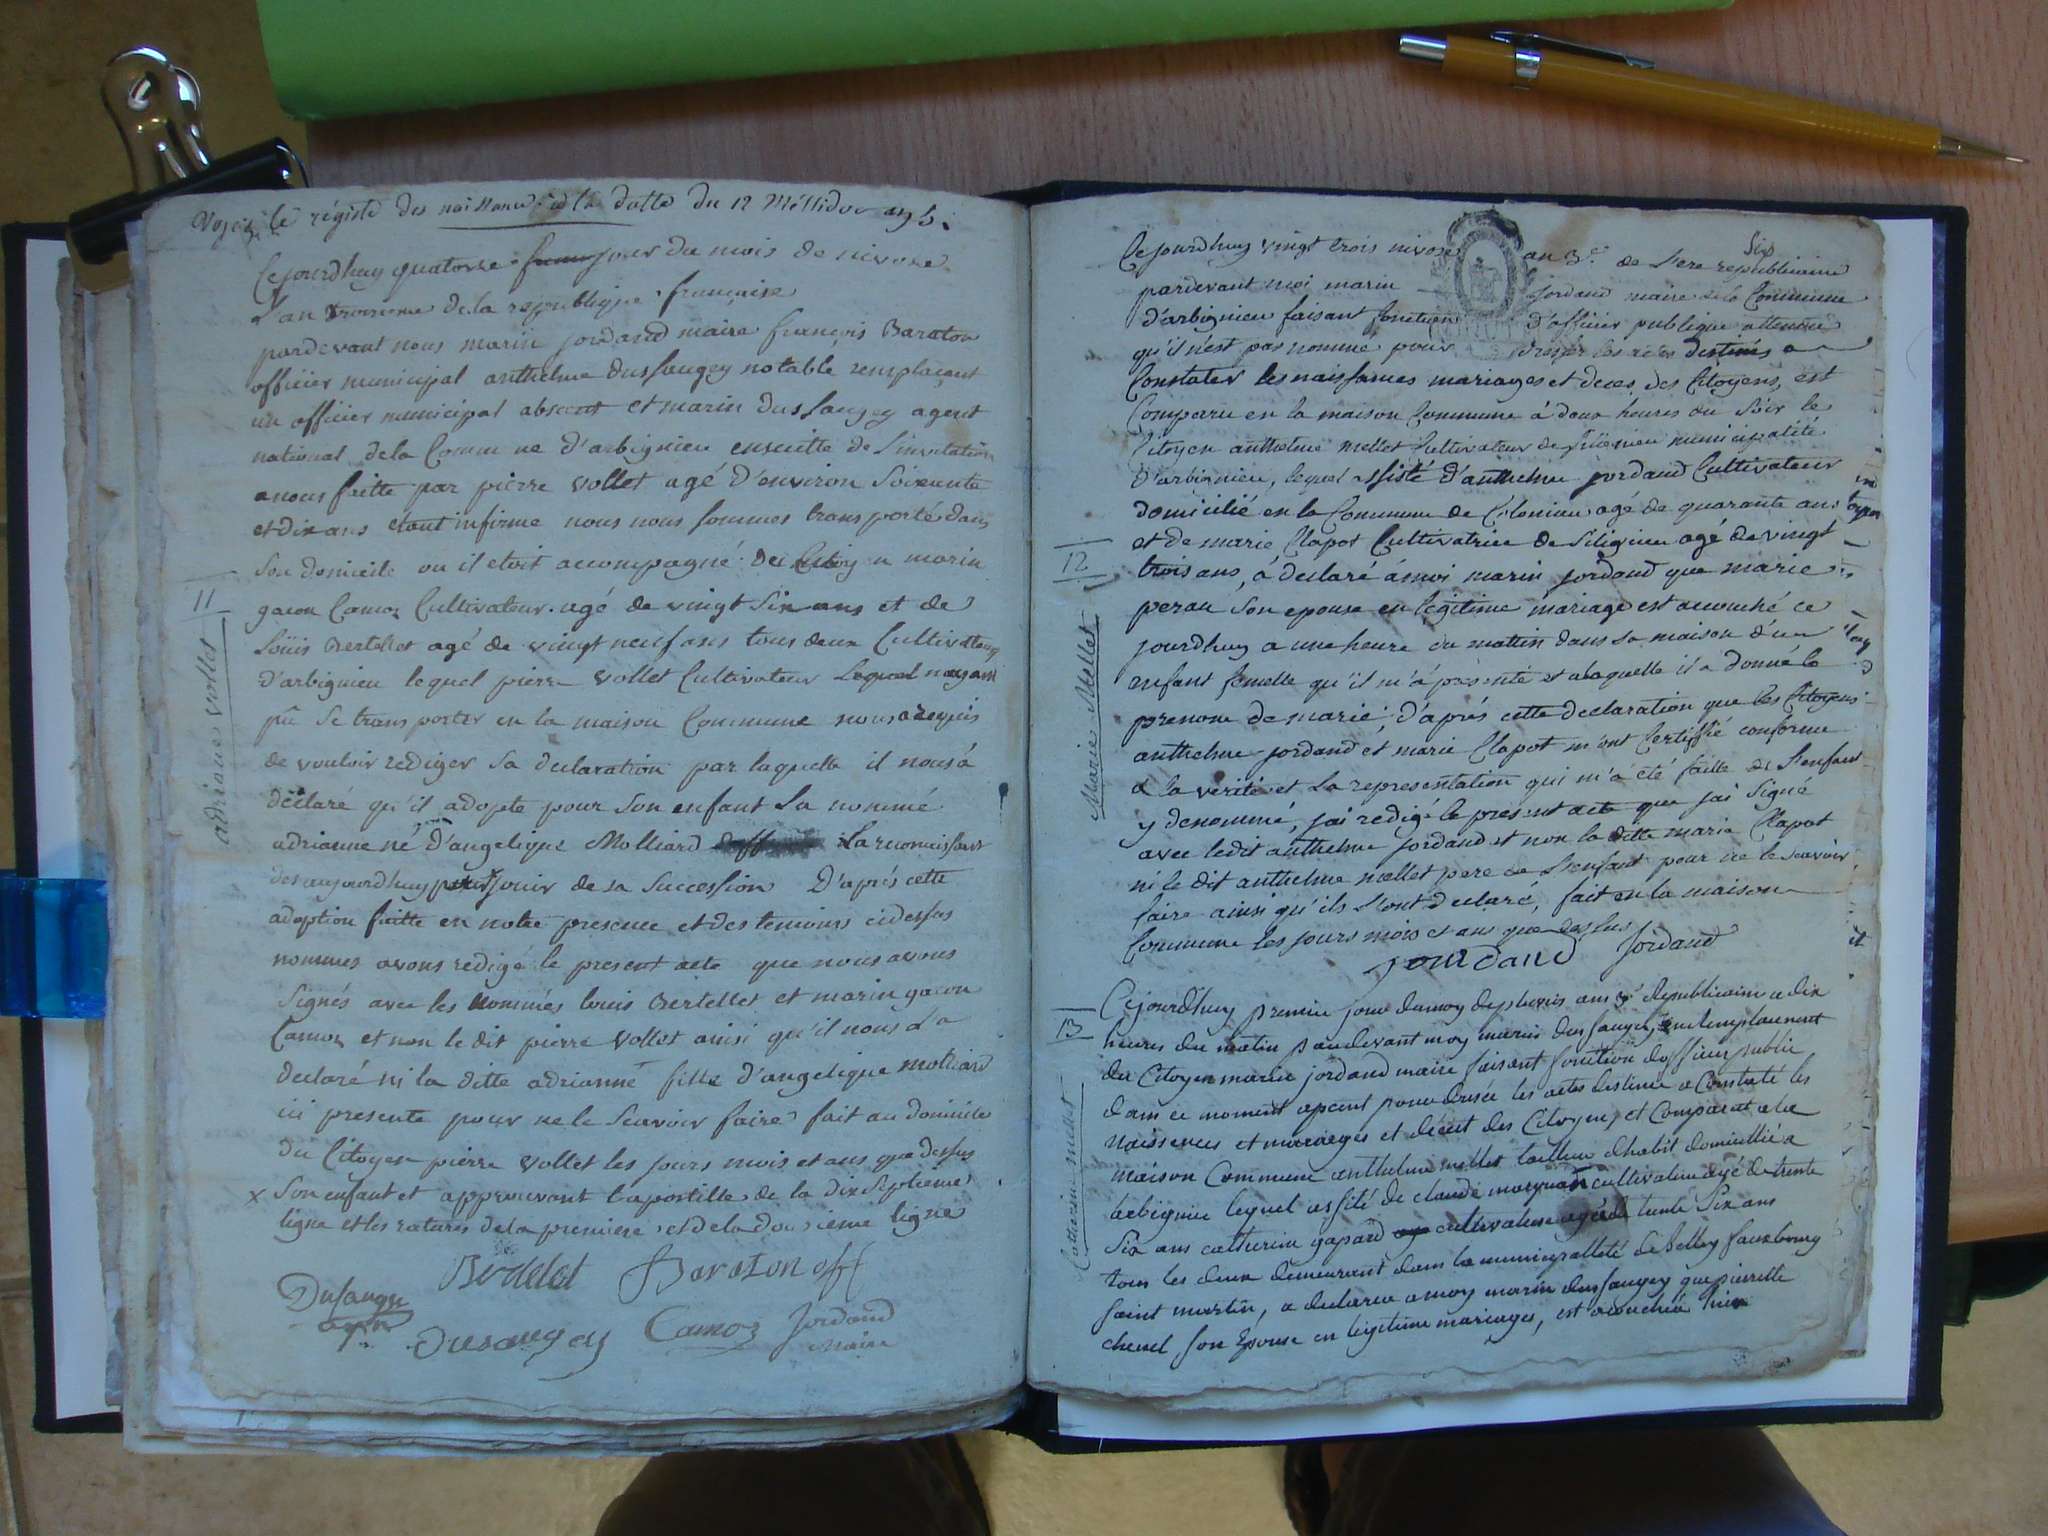 Voyez le régistre des naissances à la datte du 12 Messidor an 5.
Cejourdhuy quatorze jour du mois de nivose
L'an troisieme de la republique française
pardevant nous marin jordand maire françois Baraton
officier municipal anthelme dussaugey notable remplaçant
un officier municipal absent et marin dussaugey agent
national de la Commune d'arbignieu ensuitte de l'invitation
a nous faitte par pierre vollet agé d'environ soixante
et dix ans etant infirme nous nous sommes transporté dans
son domicile ou il etoit accompagné de Citoyen marin
gacon Camoz Cultivateur agé de vingt six ans et de
Loüis Bertellet agé de vingt neuf ans tous deux Cultivateurs
d'arbignieu lequel pierre vollet Cultivateur Lequel nayant
pu se transporter en la maison Commune nous a requis
de vouloir rediger sa declaration par laquelle il nous a
déclaré qu'il adopte pour son enfant la nommé
adrianne né d'angelique Molliard La reconnoissant
des aujourdhuy pour jouir de sa succession D'aprés cette
adoption faitte en notre presence et des temoins cidessus
nommés avons redigé le present acte que nous avons
signés avec les nommés louis Bertellet et marin gacon
Camoz et non le dit pierre vollet ainsi qu'il nous l'a
declaré ni la ditte adrianne fille d'angelique molliard
ici presente pour ne le scavoir faire fait au domicile
du Citoyen pierre vollet les jours mois et ans que dessus
x son enfant et approuvant l'apostille de la dix septieme
ligne et les ratures de la premiere et de la douzième ligne
Bertelet Baraton off
Dusaugey
agent
Dusaugey Camoz Jordand
maire
11
adrianne vollet
Six
Cejourdhuy vingt trois nivose an 3e. de l'ere republicaine
pardevant moi marin jordand maire de la Commune
d'arbignieu faisant fonction d'officier publique attendu
qu'il n'est pas nommé pour dresser les actes destinés a
Constater les naissances mariages et deces des Citoyens, est
Comparu en la maison Commune à deux heures du soir le
Citoyen anthelme mellet Cultivateur de municipalité
d'arbignieu, lequel assisté d'anthelme jordand Cultivateur
domicilié en la Commune de Colomieu agé de quarante ans
et de marie Clapot Cultivatrice de Siligneu agé de vingt
trois ans, à declaré à moi marin jordand que marie
perau son epouse en legitime mariage est accouché ce
jourdhuy a une heure du mattin dans sa maison d'un
enfant femelle qu'il m'a présenté et a laquelle il a donné le
prenom de marie. d'aprés cette declaration que les Citoyens
anthelme jordand et marie Clapot m'ont Certifié conforme
a la verité et la representation qui m'a été faitte de l'enfant
y denommé, j'ai redigé le present acte que j'ai signé
avec ledit anthelme jordand et non la ditte marie Clapot
ni le dit anthelme mellet pere de l'enfant pour ne le scavoir
faire ainsi qu'ils l'ont declaré, fait en la maison
Commune les jours mois et ans que dessus
Jourdand Jordand
12
Marie Mellet
Cejourdhuy premier jour du moy de pluviôs ans 3e Republicain a dix
heures du matin pardevant moy marin dussaugey, en remplacement
du Citoyen marin jordand maire faisant fonction d'officier public
dans ce moment apcent pour dresée les actes destinee a Constaté les
naissences et mariages et décet des Citoyens, et Comparut a la
maison Commune anthelme mellet tailleur d'habit domicillié a
arbignieu lequel assité de claude cultivateur agé de trente
six ans catherine gapard cultivateure agée de trente six ans
tous les deux demeurant dans la municipalleté de Belley fauxbourg
saint martin, a declarée a moy marin dussaugey que pierrette
chenel son Epouse en legitime mariages, est acouchée hier
13
Catherine mellet